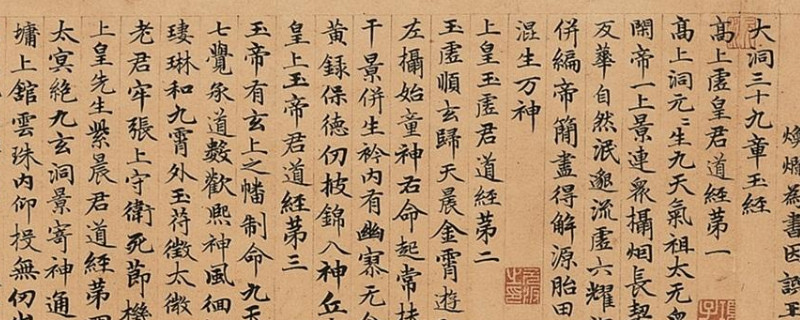 煥爛為書因
大洞三十九章玉經
高上虛皇君道經第一
高上洞元元生九天氣祖太无
開帝一上景連眾攝烟長契
反華自然泯邈流虛六耀
併編帝簡盡得解源胎田
混生万神
上皇玉虛君道經第二
玉虛順玄歸天晨金霄遊
左攝始童神右命起常扶
干景併生衿內有幽寥无
黃籙保德仞披錦入神丘
皇上玉帝君道經第三
玉帝有玄上之幡制命九天
七覺乘道數歡熙神風徊
瓊琳和九霄外玉苻徵太微
老君牢張上守衛死節機
上皇先生紫晨君道經第四
太冥絕九玄洞景寄神通
墉上舘雲珠內仰投無仞